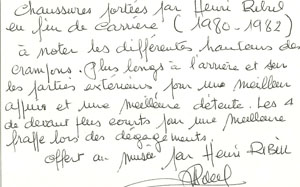 Chaussures portées par Henri Ribul
en fin de carrière (1980-1982)
à noter les différentes hauteurs des
crampons. Plus longs à l'arrière et sur
les parties extérieurs, pour une meilleur
appui et une meilleure détente. Les 4
de devant plus courts pour une meilleure
frappe lors des dégagements.
offert au musée par Henri RIBUL